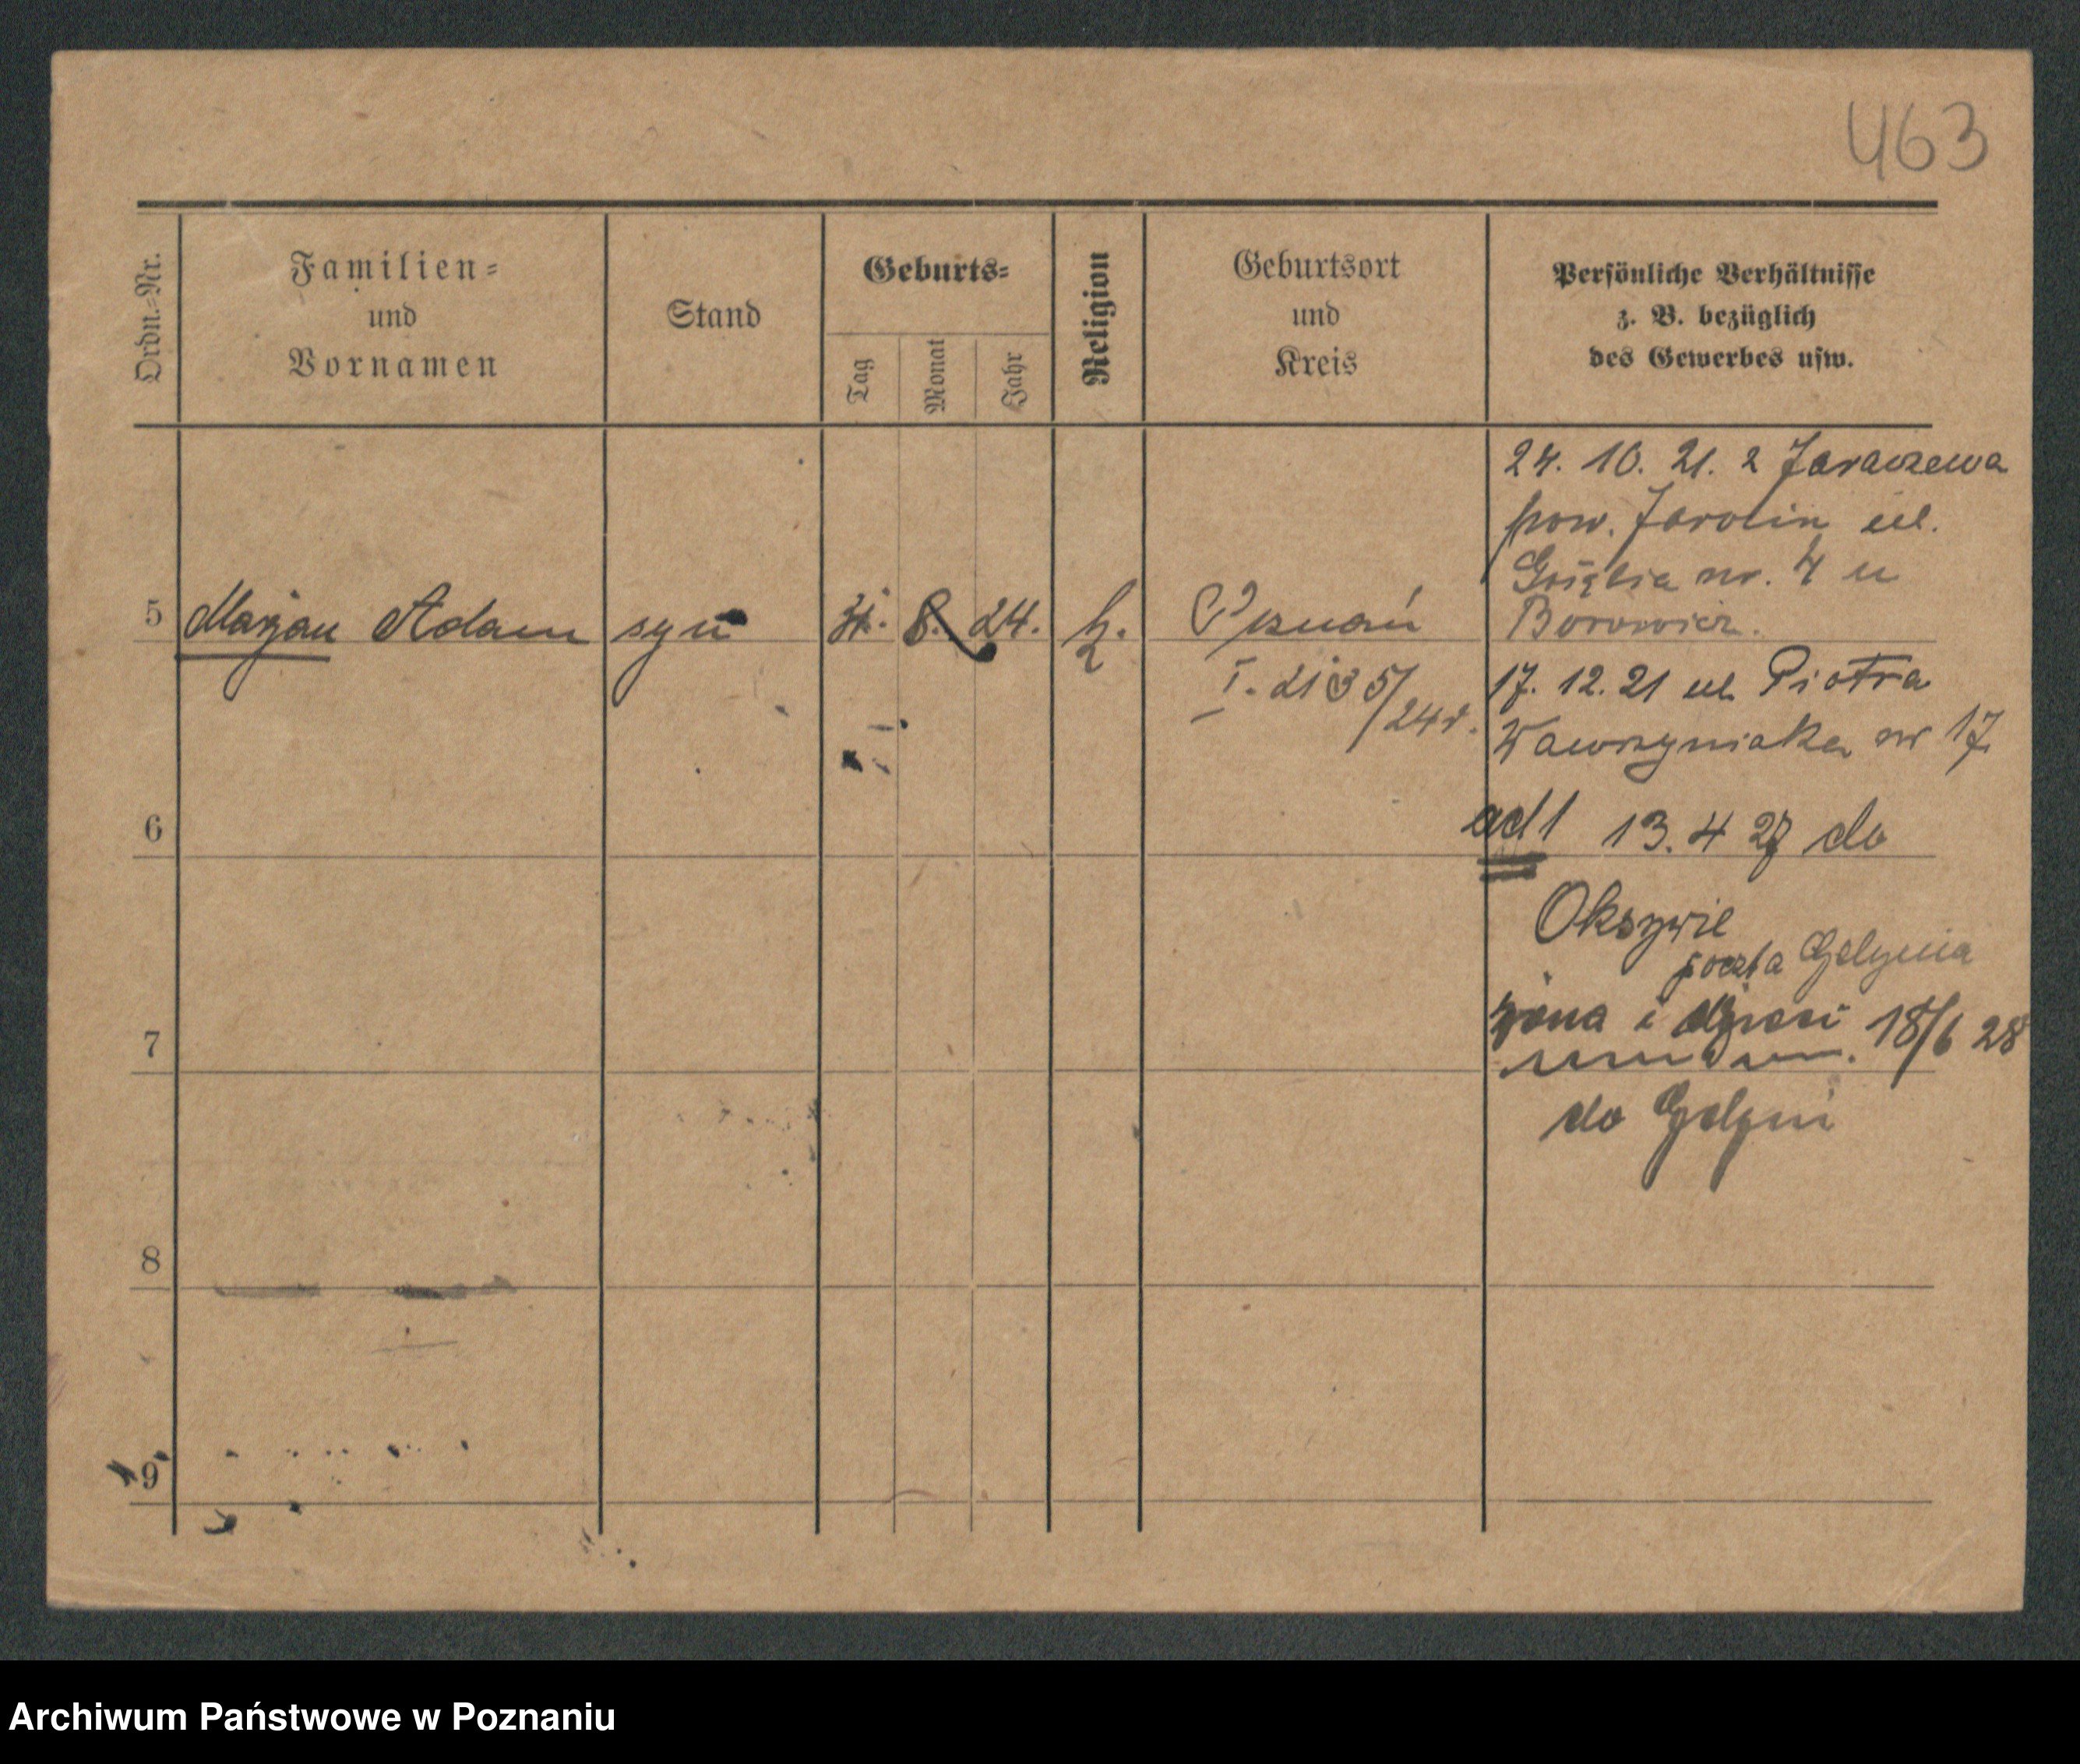 463
Ordn.=Nr.
Familien=
und
Vornamen
Stand
Geburts=
Tag
Monat
Jahr
Religion
Geburtsort
und
Kreis
Persönliche Verhältnisse
z. B. bezüglich
des Gewerbes usw.
24. 10. 21. z Jaraczewa
pow. Jarocin ul.
nr. 4 u
Borowicz.
5 Marjan Adam syn 31. 8. 24. k. Poznań
I. 2135/24r.
17. 12. 21 ul. Piotra
Wawrzyniaka nr 17.
6
ad 1 13. 4 27 do
Oksywie
poczta Gdynia
żona i dzieci 18/6 28
7
do Gdyni
8
9
Archiwum Państwowe w Poznaniu